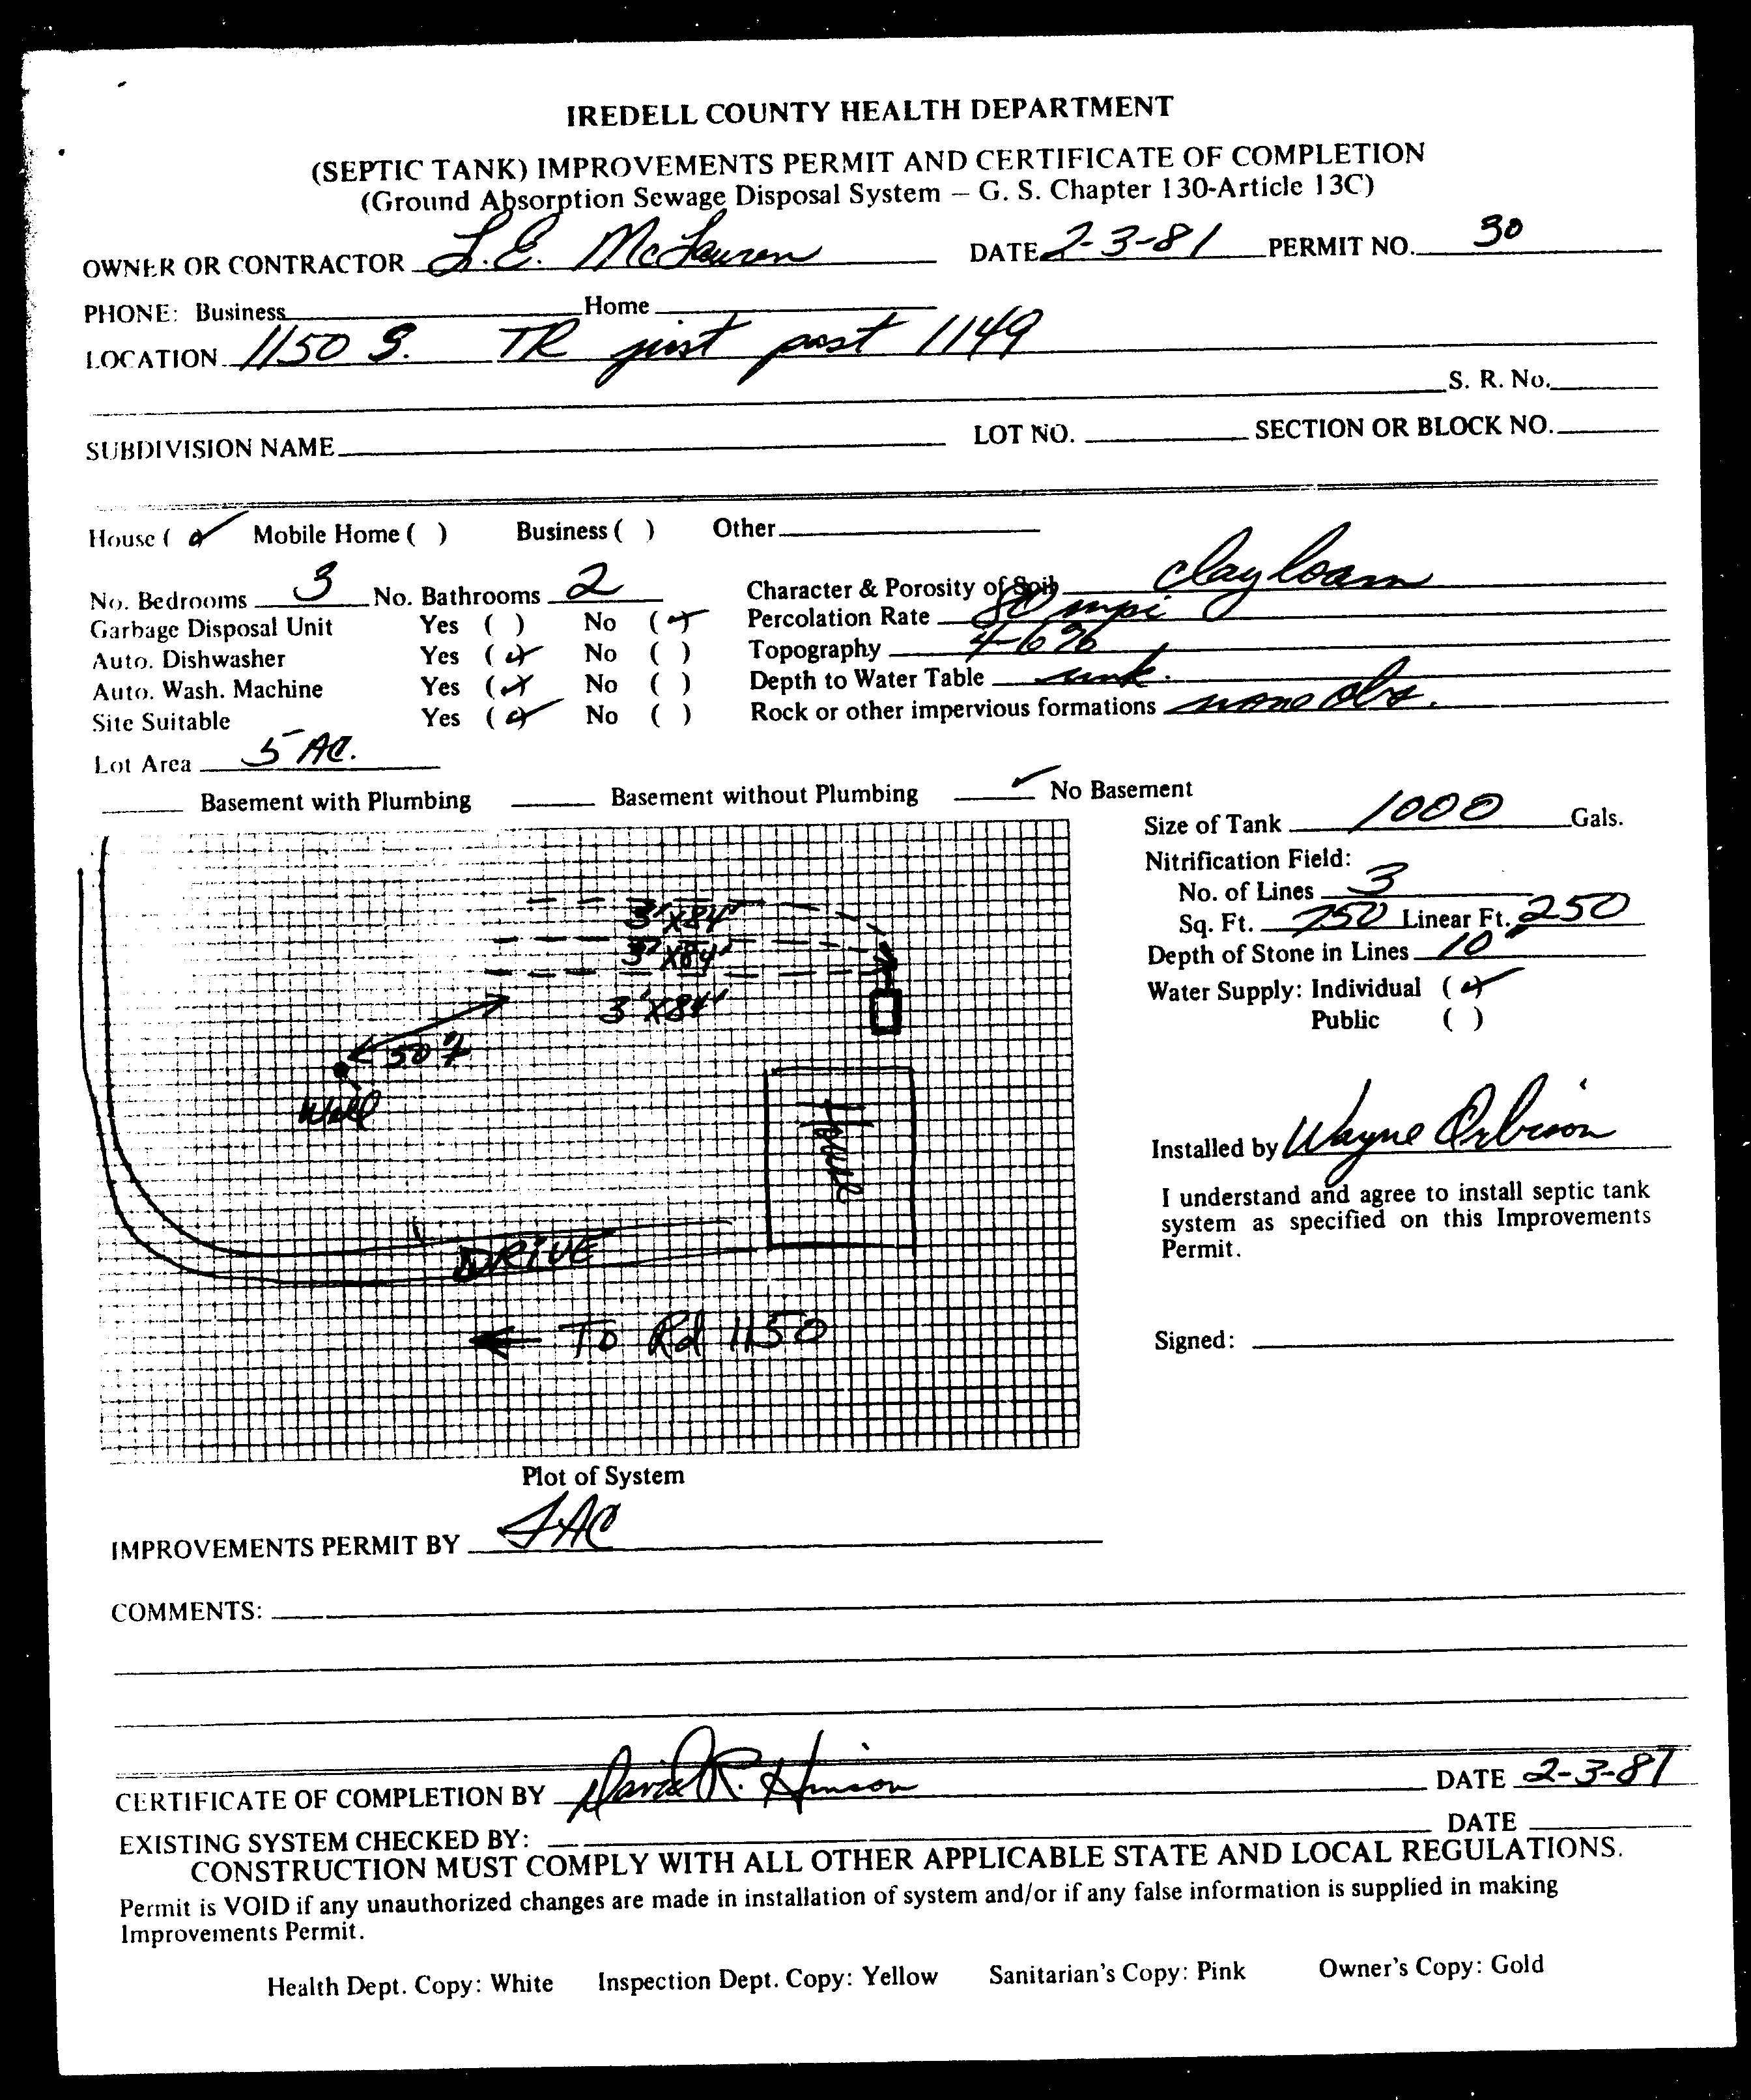 IREDELL COUNTY HEALTH DEPARTMENT
(SEPTIC TANK) IMPROVEMENTS PERMIT AND CERTIFICATE OF COMPLETION
(Ground Absorption Sewage Disposal System — G. S. Chapter 130-Article 13C)
OWNER OR CONTRACTOR L.E. McLauren DATE 2-3-81 PERMIT NO. 30
PHONE: Business Home
LOCATION 1150 S. TR just past 1149
S. R. No.
SUBDIVISION NAME LOT NO. SECTION OR BLOCK NO.
House (✓) Mobile Home ( ) Business ( ) Other
No. Bedrooms 3 No. Bathrooms 2 Character & Porosity of Soib clay loam
Garbage Disposal Unit Yes ( ) No (✓) Percolation Rate 80 mpi
Auto. Dishwasher Yes (✓) No ( ) Topography 4-6%
Auto. Wash. Machine Yes (✓) No ( ) Depth to Water Table unk.
Site Suitable Yes (✓) No ( ) Rock or other impervious formations none obs.
Lot Area 5 AC.
Basement with Plumbing Basement without Plumbing ✓ No Basement
Size of Tank 1000 Gals.
Nitrification Field:
No. of Lines 3
Sq. Ft. 750 Linear Ft. 250
Depth of Stone in Lines 10"
Water Supply: Individual (✓)
Public ( )
3'X84'
3'X84'
3'X84'
50'
Well
House
DRIVE
To Rd 1150
Installed by Wayne Orbison
I understand and agree to install septic tank
system as specified on this Improvements
Permit.
Signed:
Plot of System
IMPROVEMENTS PERMIT BY
COMMENTS:
CERTIFICATE OF COMPLETION BY David R. Hinson DATE 2-3-81
EXISTING SYSTEM CHECKED BY: DATE
CONSTRUCTION MUST COMPLY WITH ALL OTHER APPLICABLE STATE AND LOCAL REGULATIONS.
Permit is VOID if any unauthorized changes are made in installation of system and/or if any false information is supplied in making
Improvements Permit.
Health Dept. Copy: White Inspection Dept. Copy: Yellow Sanitarian's Copy: Pink Owner's Copy: Gold